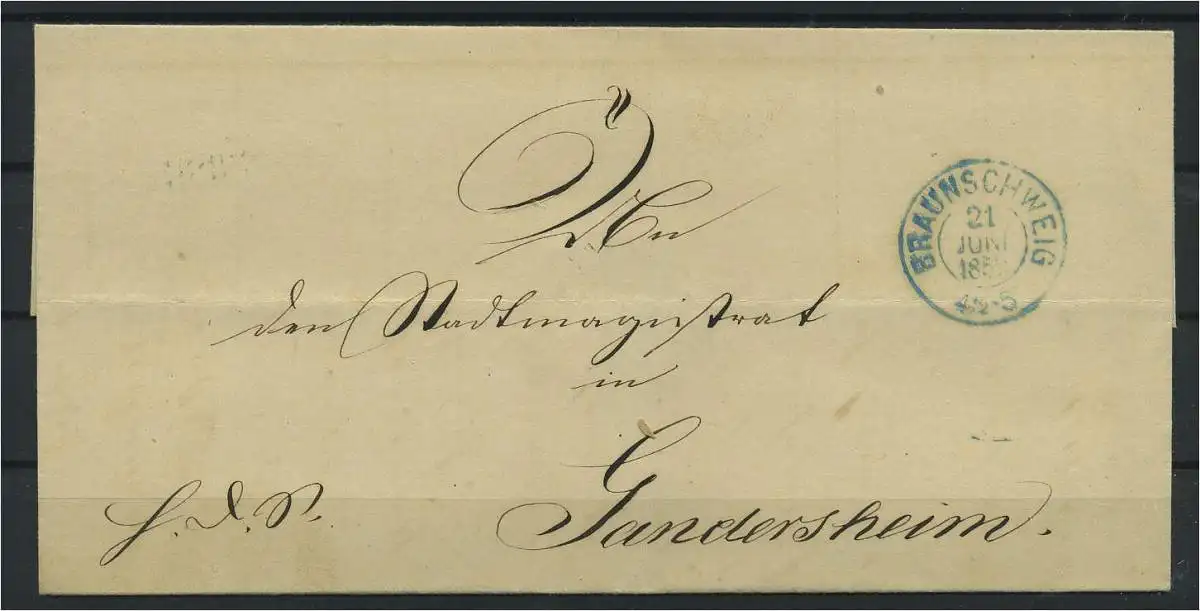 An
den Stadtmagistrat
in
Gandersheim.
H. d. S.
BRAUNSCHWEIG
21
JUNI
4½-5